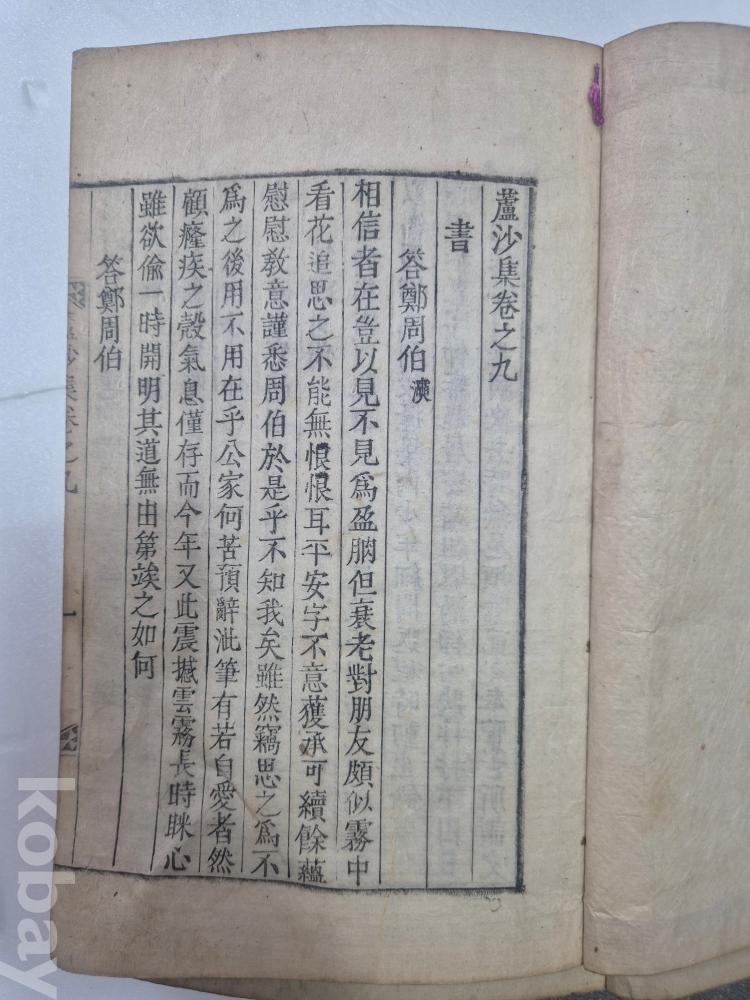 蘆沙集卷之九
書
答鄭周伯 瀷
相信者在豈以見不見爲盈朒但衰老對朋友頗似霧中
看花追思之不能無恨恨耳平安字不意獲承可續餘蘊
慰慰教意謹悉周伯於是乎不知我矣雖然竊思之爲不
爲之後用不用在乎公家何苦預辭泚筆有若自愛者然
顧癃疾之殼氣息僅存而今年又此震撼雲霧長時眯心
雖欲偷一時開明其道無由第竢之如何
答鄭周伯
沙集卷之九
一
kobay